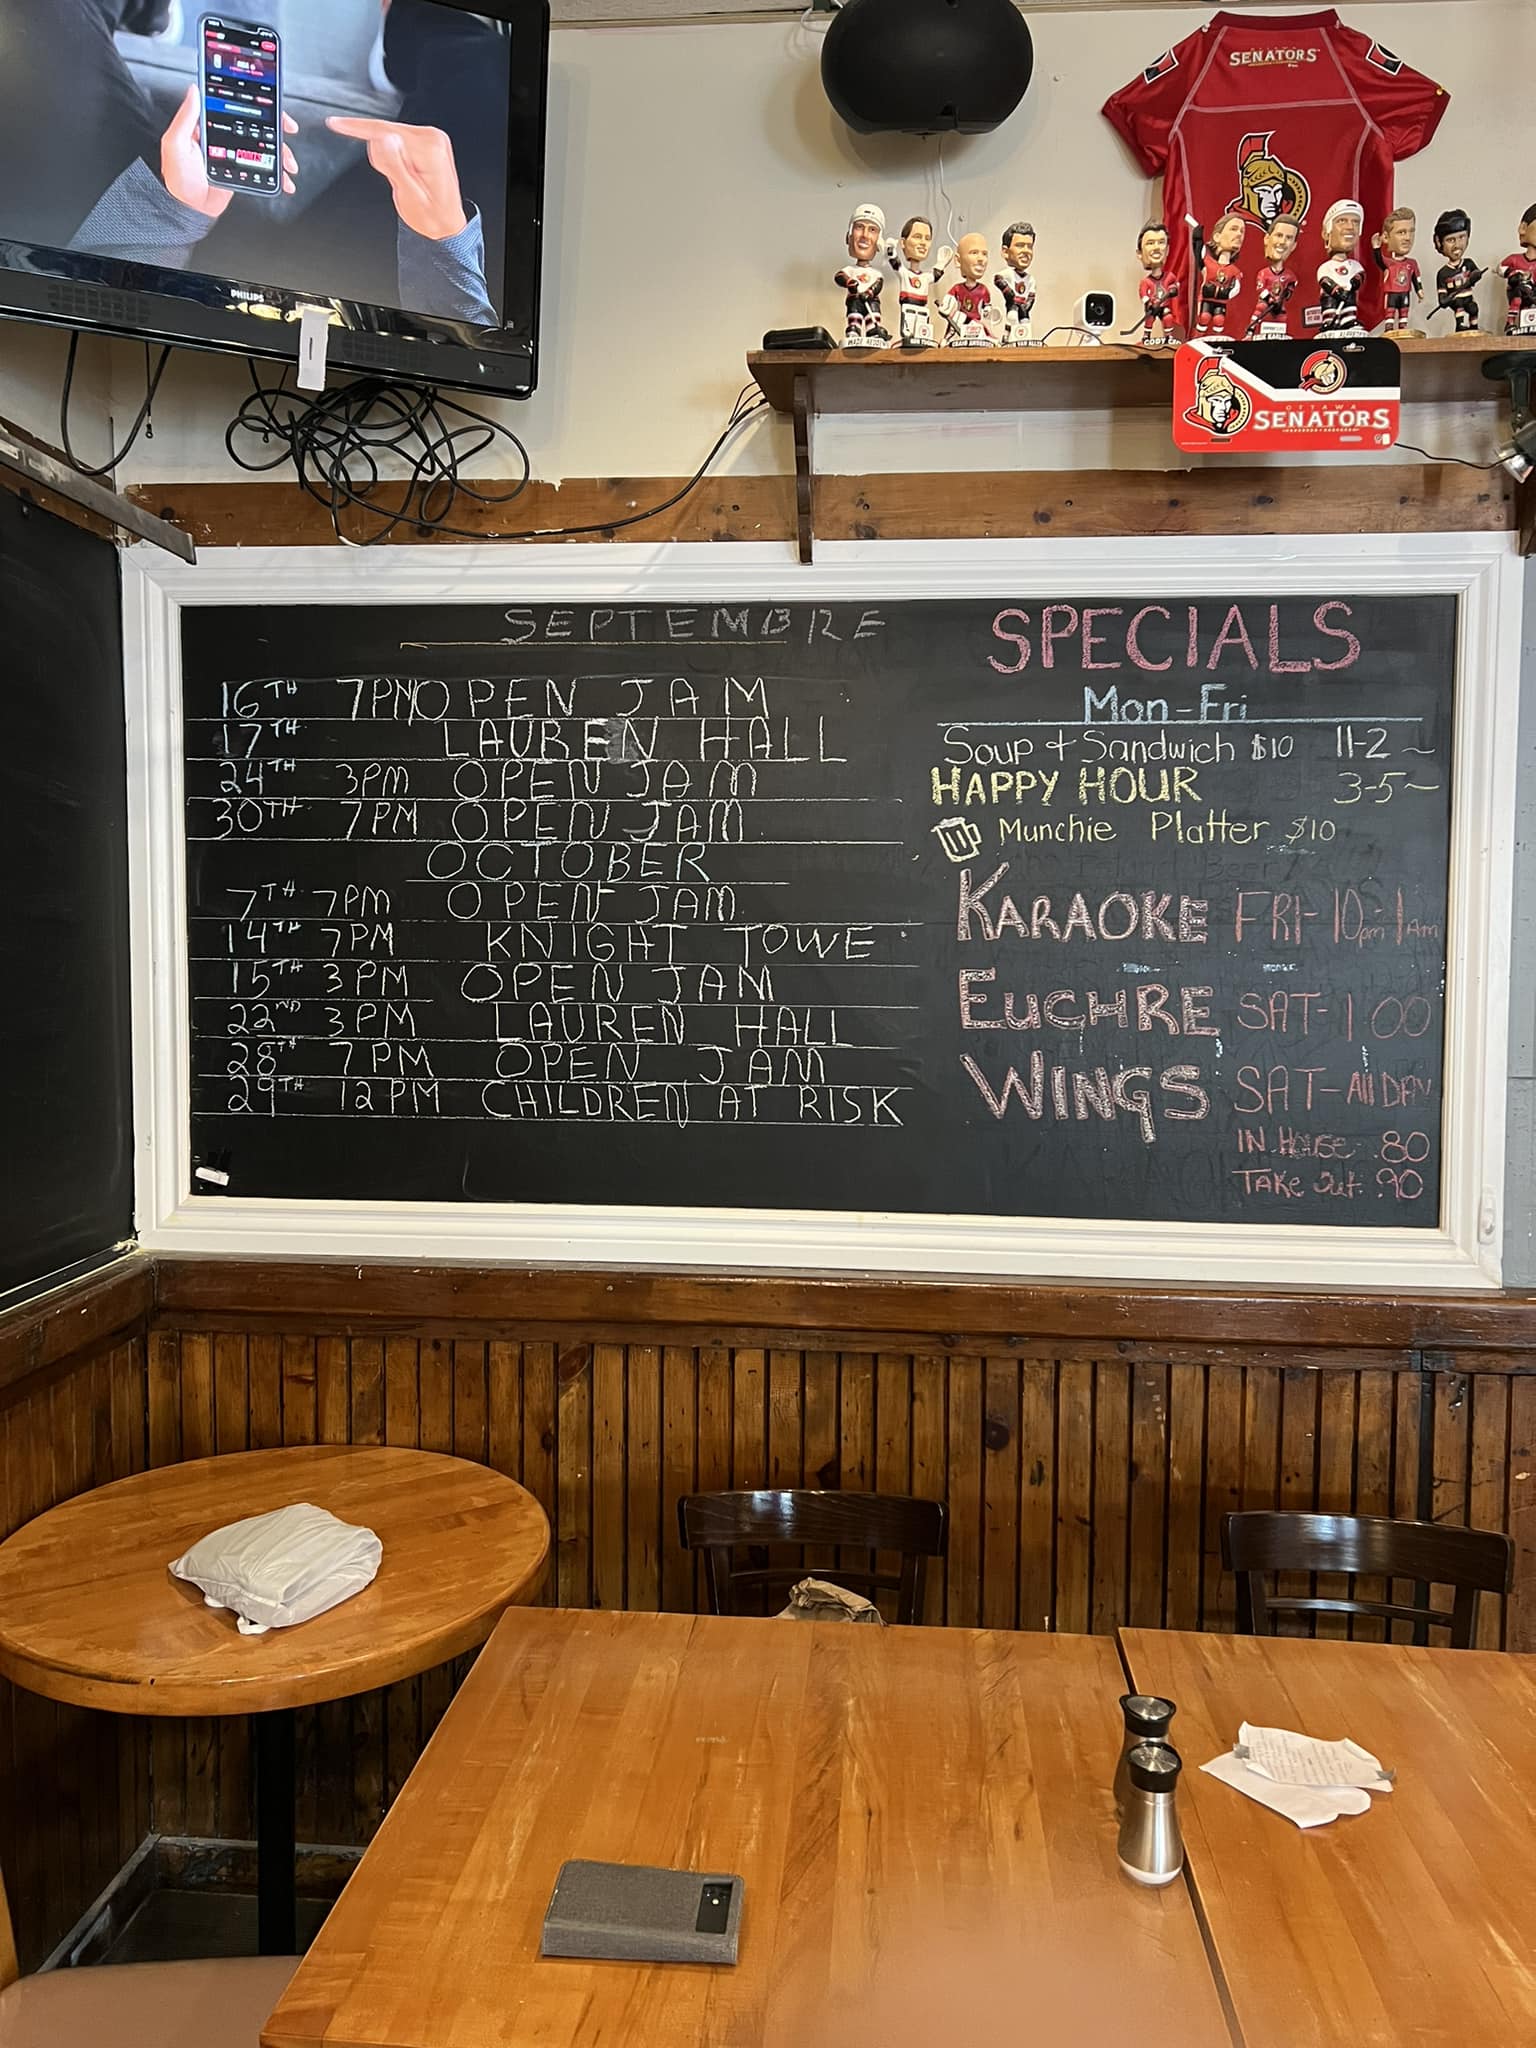 SENATORS
PHILIPS
OTTAWA
SENATORS
SEPTEMBRE
16TH 7PM OPEN JAM
17TH LAUREN HALL
24TH 3PM OPEN JAM
30TH 7PM OPEN JAM
OCTOBER
7TH 7PM OPEN JAM
14TH 7PM KNIGHT TOWE
15TH 3PM OPEN JAM
22ND 3PM LAUREN HALL
28TH 7PM OPEN JAM
29TH 12PM CHILDREN AT RISK
SPECIALS
Mon-Fri
Soup + Sandwich $10 11-2 ~
HAPPY HOUR 3-5 ~
Munchie Platter $10
KARAOKE FRI-10pm-1Am
EUCHRE SAT-1:00
WINGS SAT-All DAY
IN House .80
TAKE Out .90